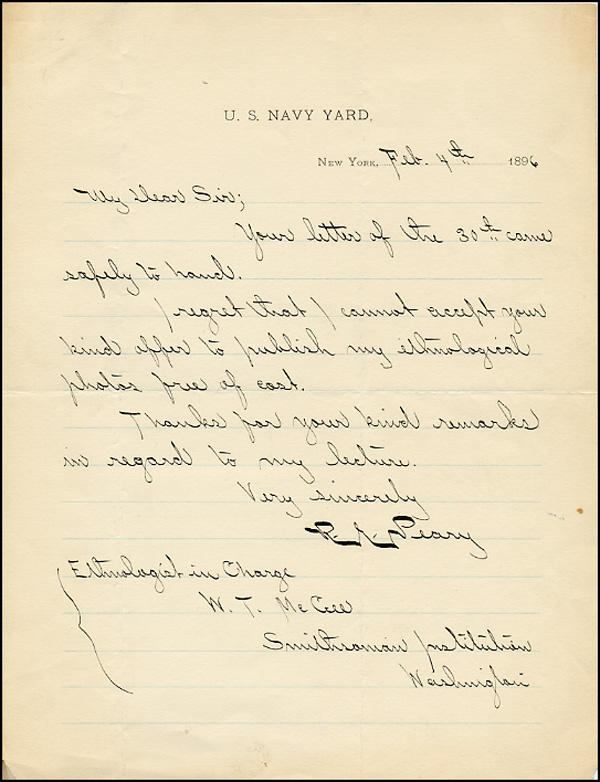 U. S. NAVY YARD,
NEW YORK, Feb. 4th 1896
My Dear Sir;
Your letter of the 30th came
safely to hand.
I regret that I cannot accept your
kind offer to publish my ethnological
photos free of cost.
Thanks for your kind remarks
in regard to my lecture.
Very sincerely
R. E. Peary
Ethnologist in Charge
W. T. McGee
Smithsonian Institution
Washington